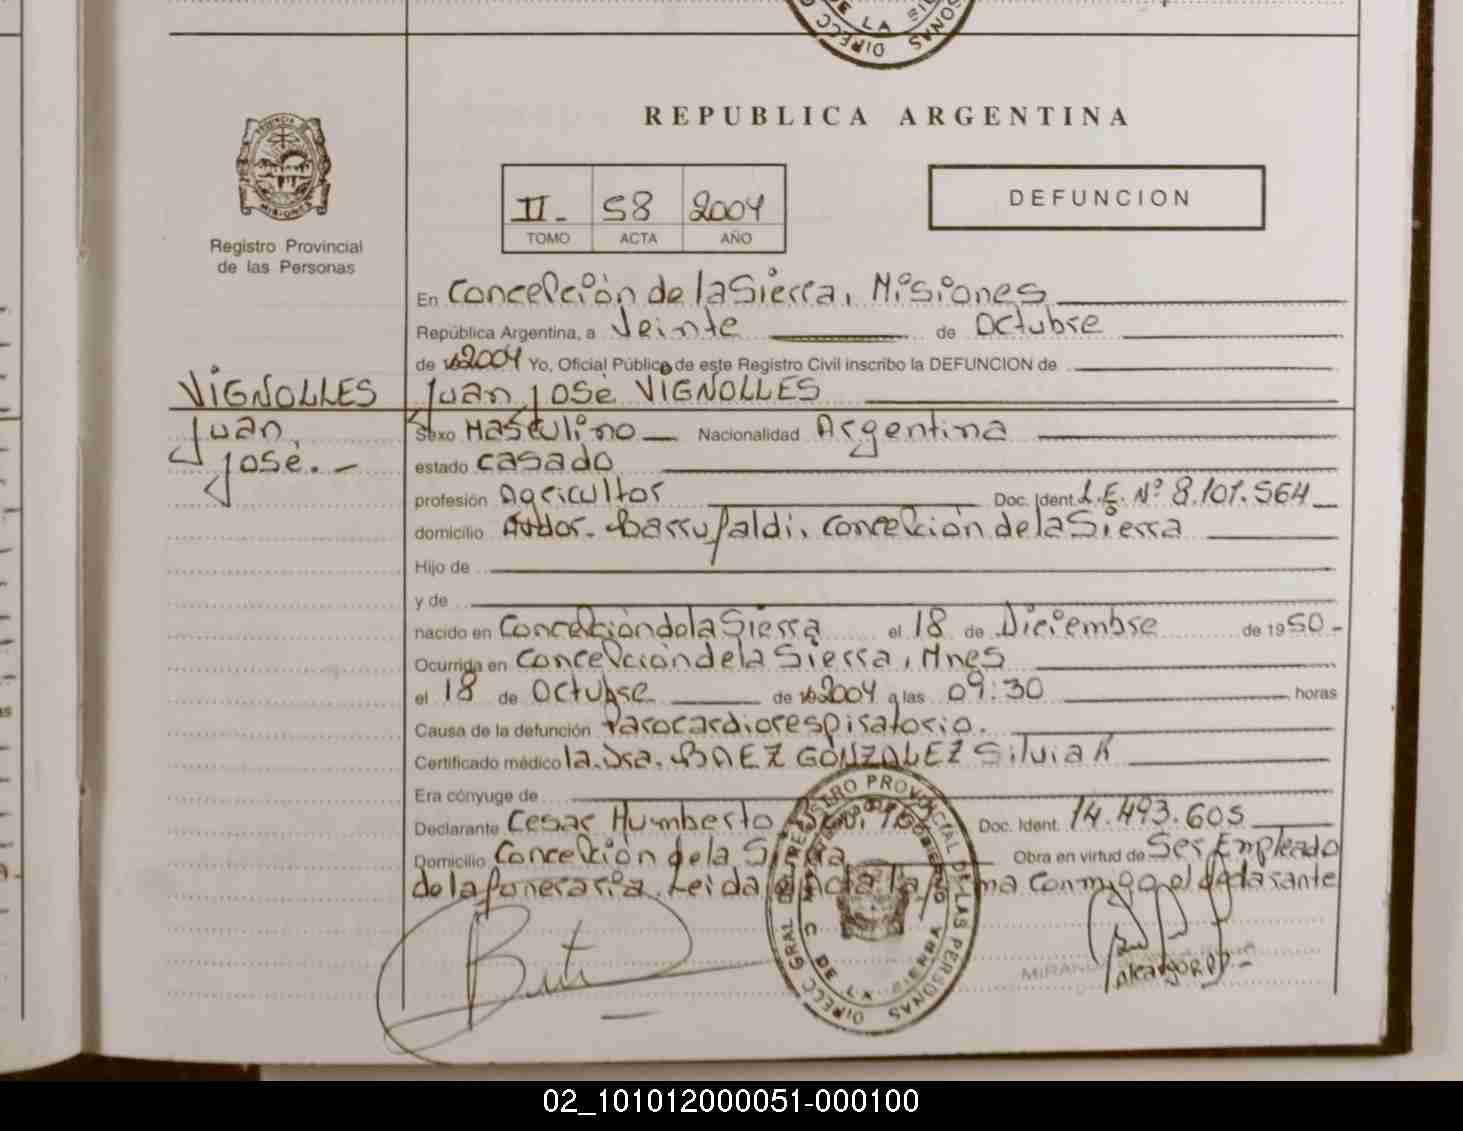 REPUBLICA ARGENTINA
Registro Provincial
de las Personas
II- 58 2004
TOMO ACTA AÑO
DEFUNCION
En Concepción de la Sierra, Misiones
República Argentina, a Veinte de Octubre
de 2004 Yo, Oficial Público de este Registro Civil inscribo la DEFUNCION de
VIGNOLLES
Juan,
José.-
Juan José VIGNOLLES
Sexo Masculino Nacionalidad Argentina
estado casado
profesión Agricultor Doc. Ident. L.E. Nº 8.101.564
domicilio Barrufaldi, Concepción de la Sierra
Hijo de
y de
nacido en Concepción de la Sierra el 18 de Diciembre de 1950-
Ocurrida en Concepción de la Sierra, Mnes
el 18 de Octubre de 2004 a las 09:30 horas
Causa de la defunción Parocardiorespiratorio.
Certificado médico la. Dra. BAEZ GONZALEZ Silvia
Era cónyuge de
Declarante Cesar Humberto Doc. Ident. 14.493.605
Domicilio Concepción de la Sierra Obra en virtud de Ser Empleado
de la funeraria. Leida el acta la firma conmigo el declarante
DIRECC GRAL DEL REGISTRO PROVINCIAL DE LAS PERSONAS
C DE LA SIERRA
02_101012000051-000100